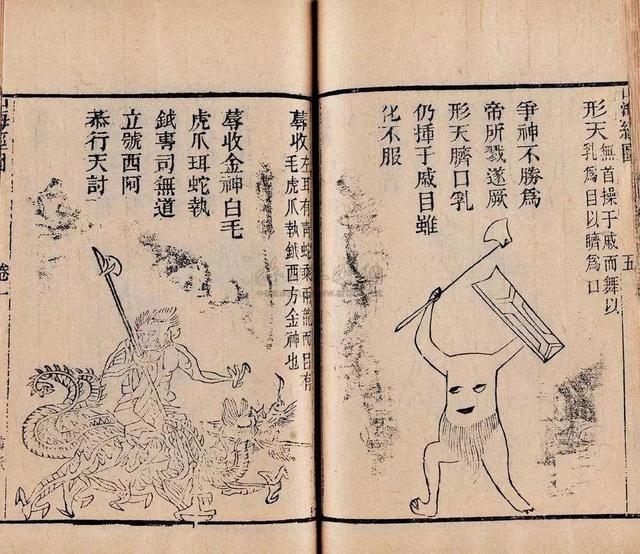 形天
無首操干戚而舞以
乳為目以臍為口
爭神不勝為
帝所戮遂厥
形天臍口乳
仍揮干戚目雖
化不服
五
蓐收
左耳有青蛇乘兩龍面目有
毛虎爪執鉞西方金神也
蓐收金神白毛
虎爪珥蛇執
鉞專司無道
立號西阿
恭行天討
卷一